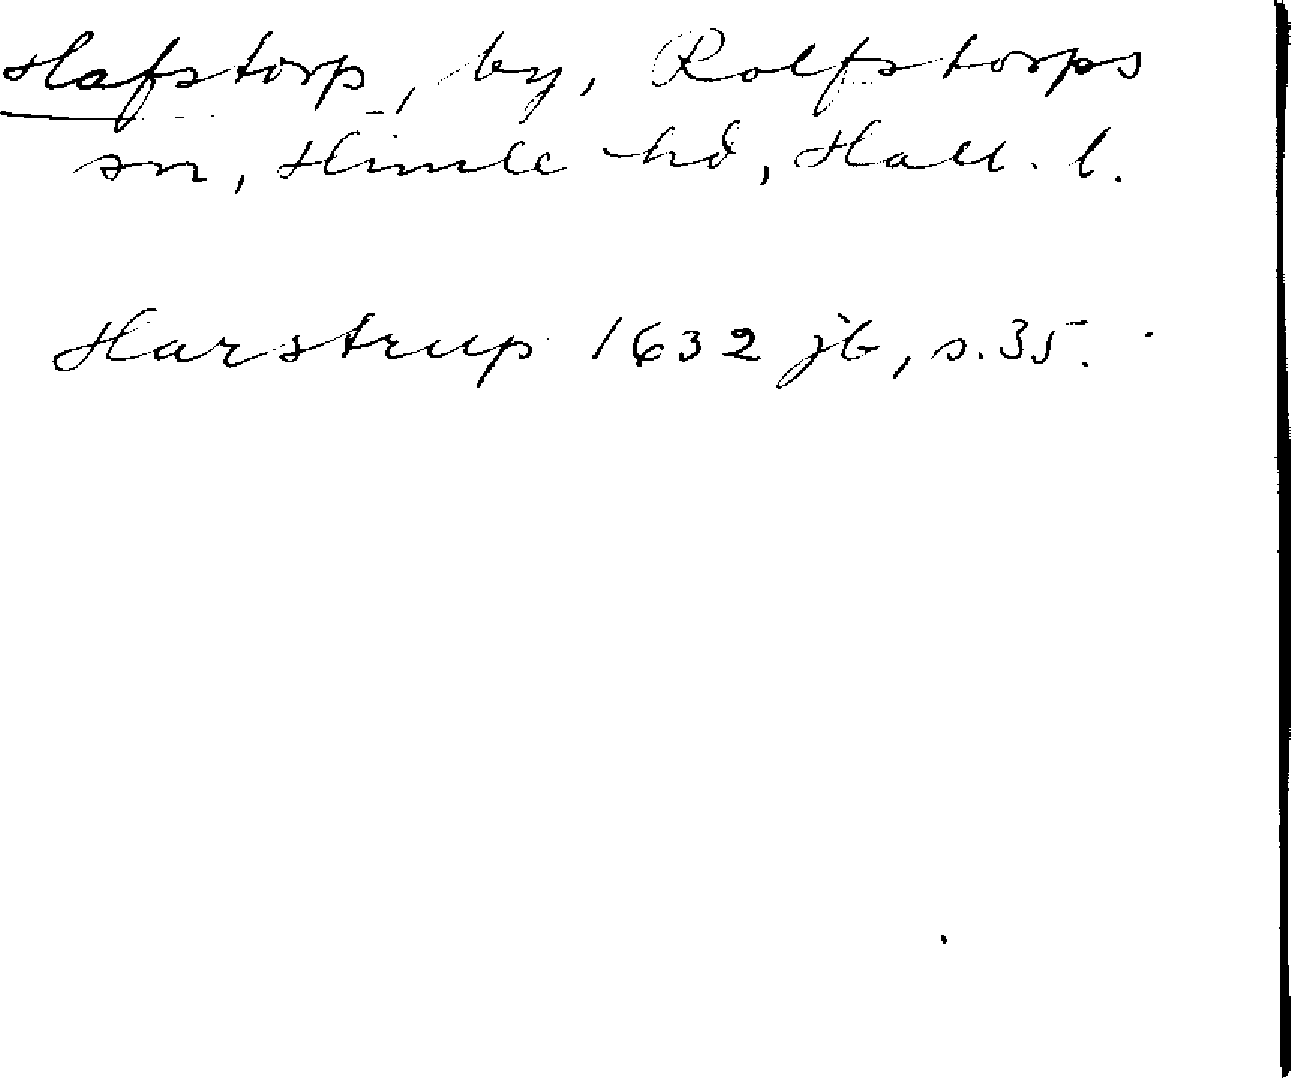 Hafstorp, by, Rolfstorps
sn, Himle hd, Hall. l.
Harstrup 1632 jb, s. 35.